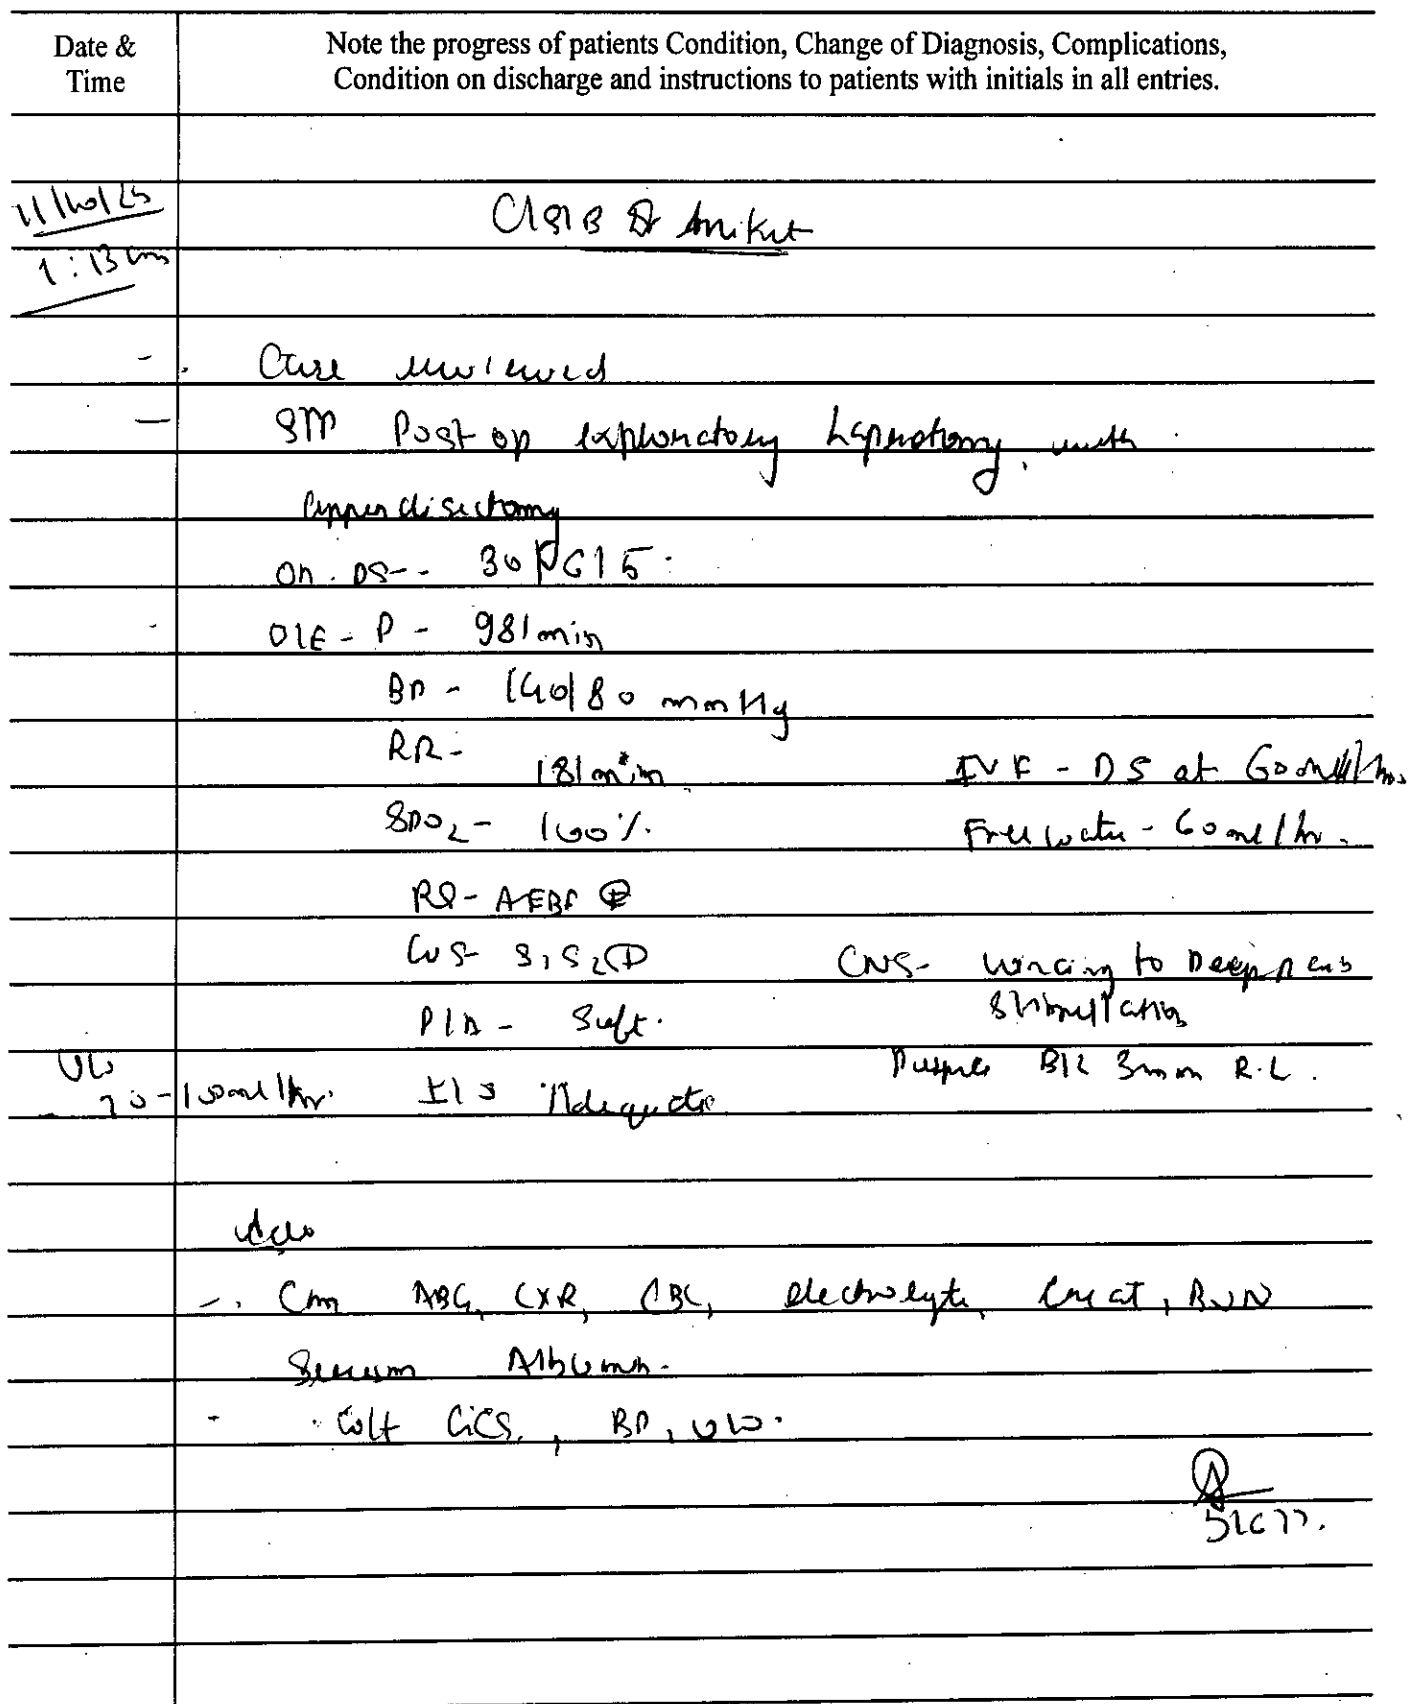 Date & Time
Note the progress of patients Condition, Change of Diagnosis, Complications,
Condition on discharge and instructions to patients with initials in all entries.
11/10/25
C/S/B Dr Aniket
1:13 am
- Case reviewed
- Post op exploratory Laparotomy, with
Appendisectomy
On. 30
O/E - P - 98/min
BP - 140/80 mmHg
RR - 18/min
IVF - DS at 60 ml/hr.
SPO2 - 100%.
Free water - 60 ml/hr.
RS - AEBE
CVS - S1S2
CNS - wincing to Deep
P/A - Soft.
stimulation
Pupils B/L 3mm R.L.
UO
70-100ml/hr.
Adequate
Adv
- Cm ABG, CXR, CBC, electrolyte, Creat, BUN
Serum Albumin.
- GCS, BP, UO.